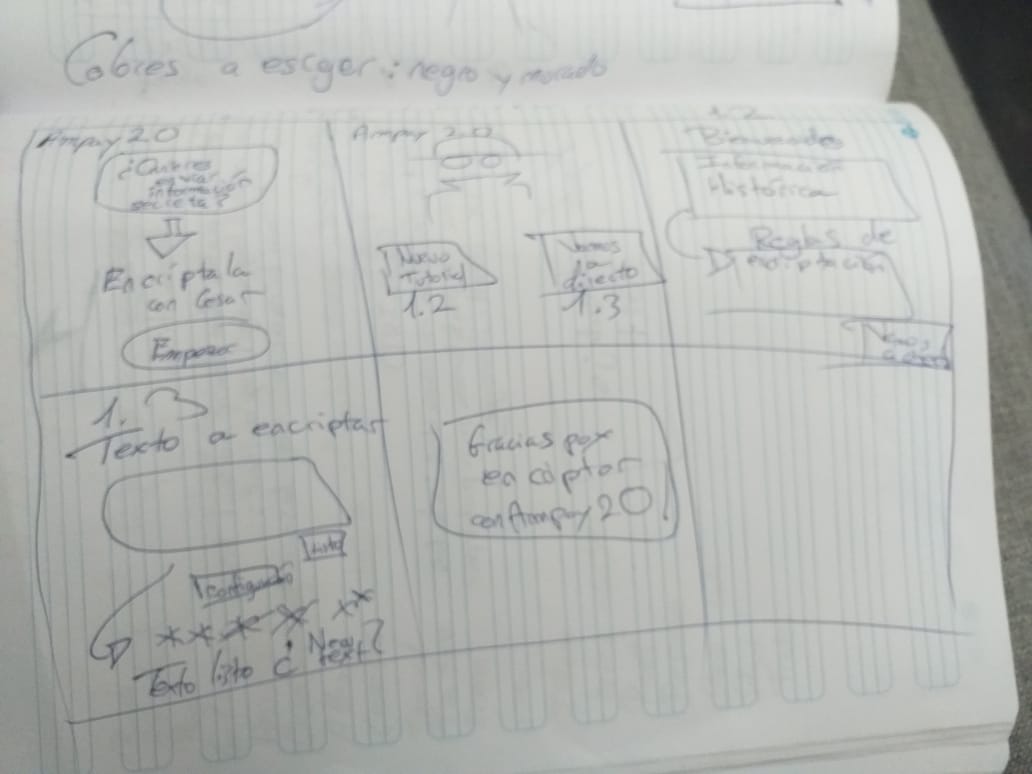 Colores a escger: negro y morado
Ampay 2.0
¿Quieres
enviar
información
secreta?
Encriptala
con Cesar
Empezar
Ampay 2.0
Nuevo
Tutorial
1.2
Vamos
a
directo
1.3
1.2
Bienvenidos
Información
Histórica
Reglas de
encriptación
1.3
Texto a encriptar
Listo
Texto listo ¿ New
text?
Gracias por
encriptar
con Ampay 20!